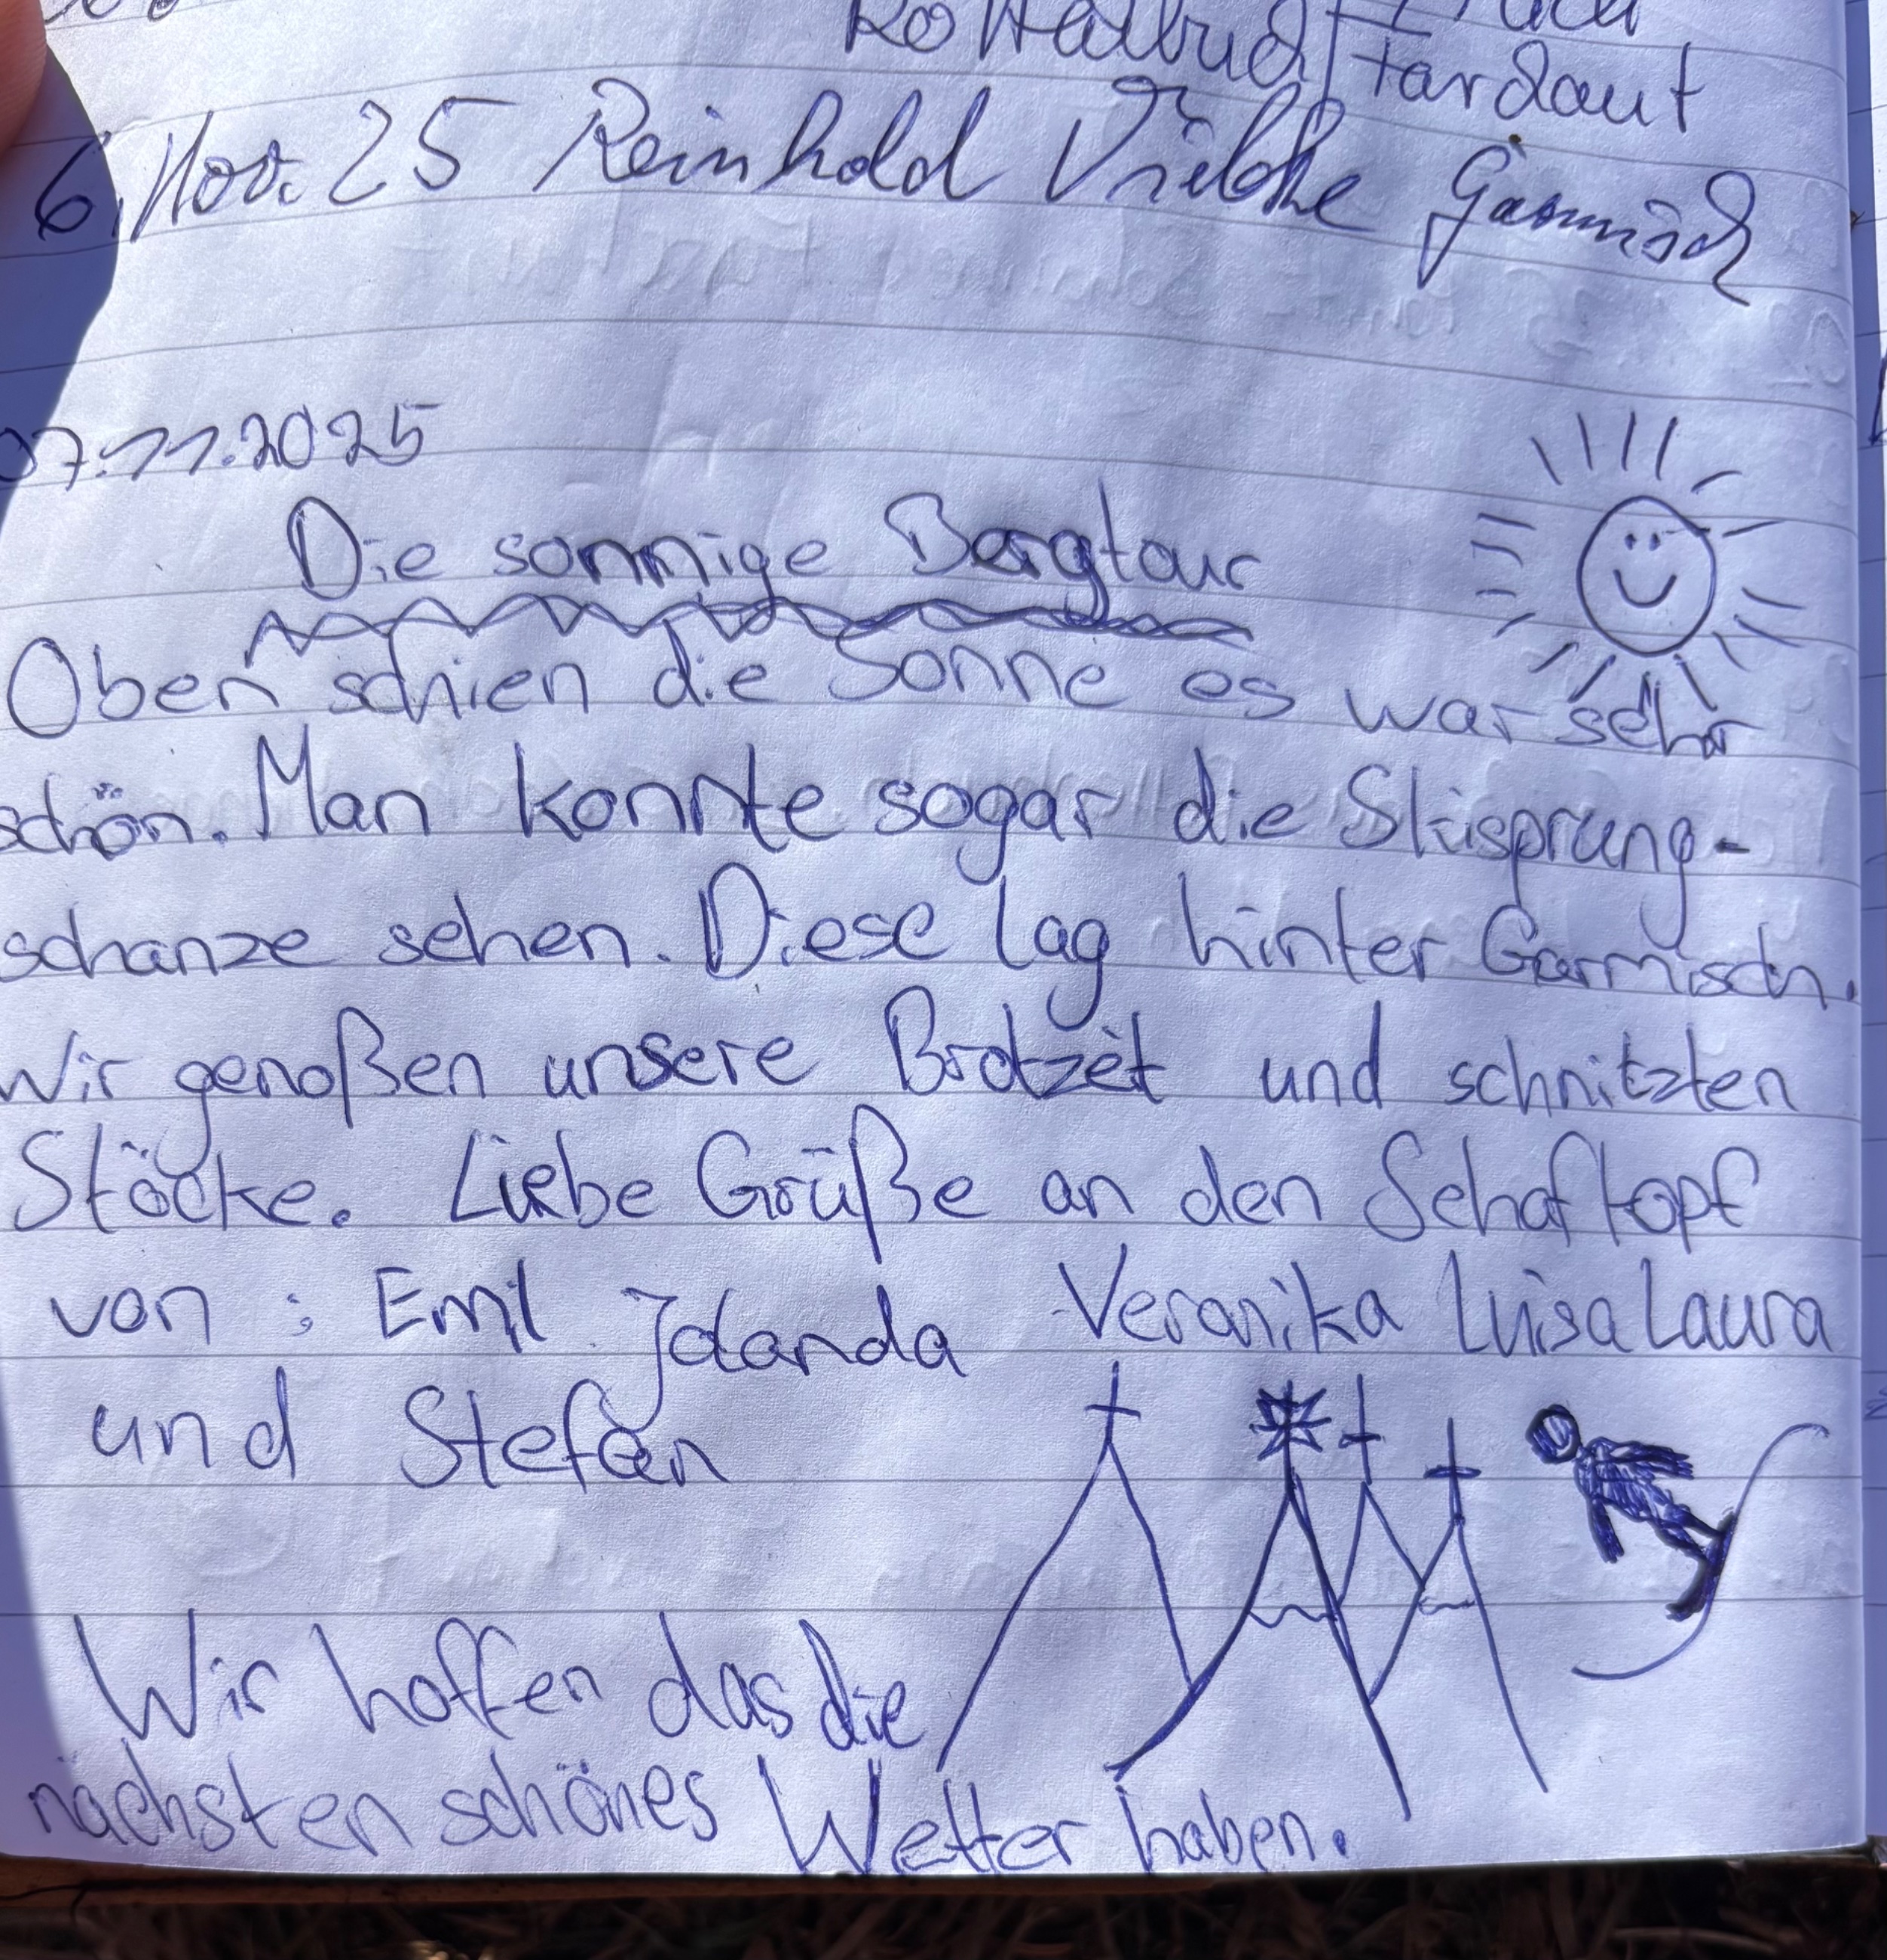 6. Nov. 25 Reinhold Garmisch
07.11.2025
Die sonnige Bergtour
Oben schien die Sonne es war sehr
schön. Man konnte sogar die Skisprung-
schanze sehen. Diese lag hinter Garmisch.
Wir genoßen unsere Brotzeit und schnitzten
Stöcke. Liebe Grüße an den Schaftopf
von : Emil Jolanda Veronika Luisa Laura
und Stefan
Wir hoffen das die
nächsten schönes Wetter haben.